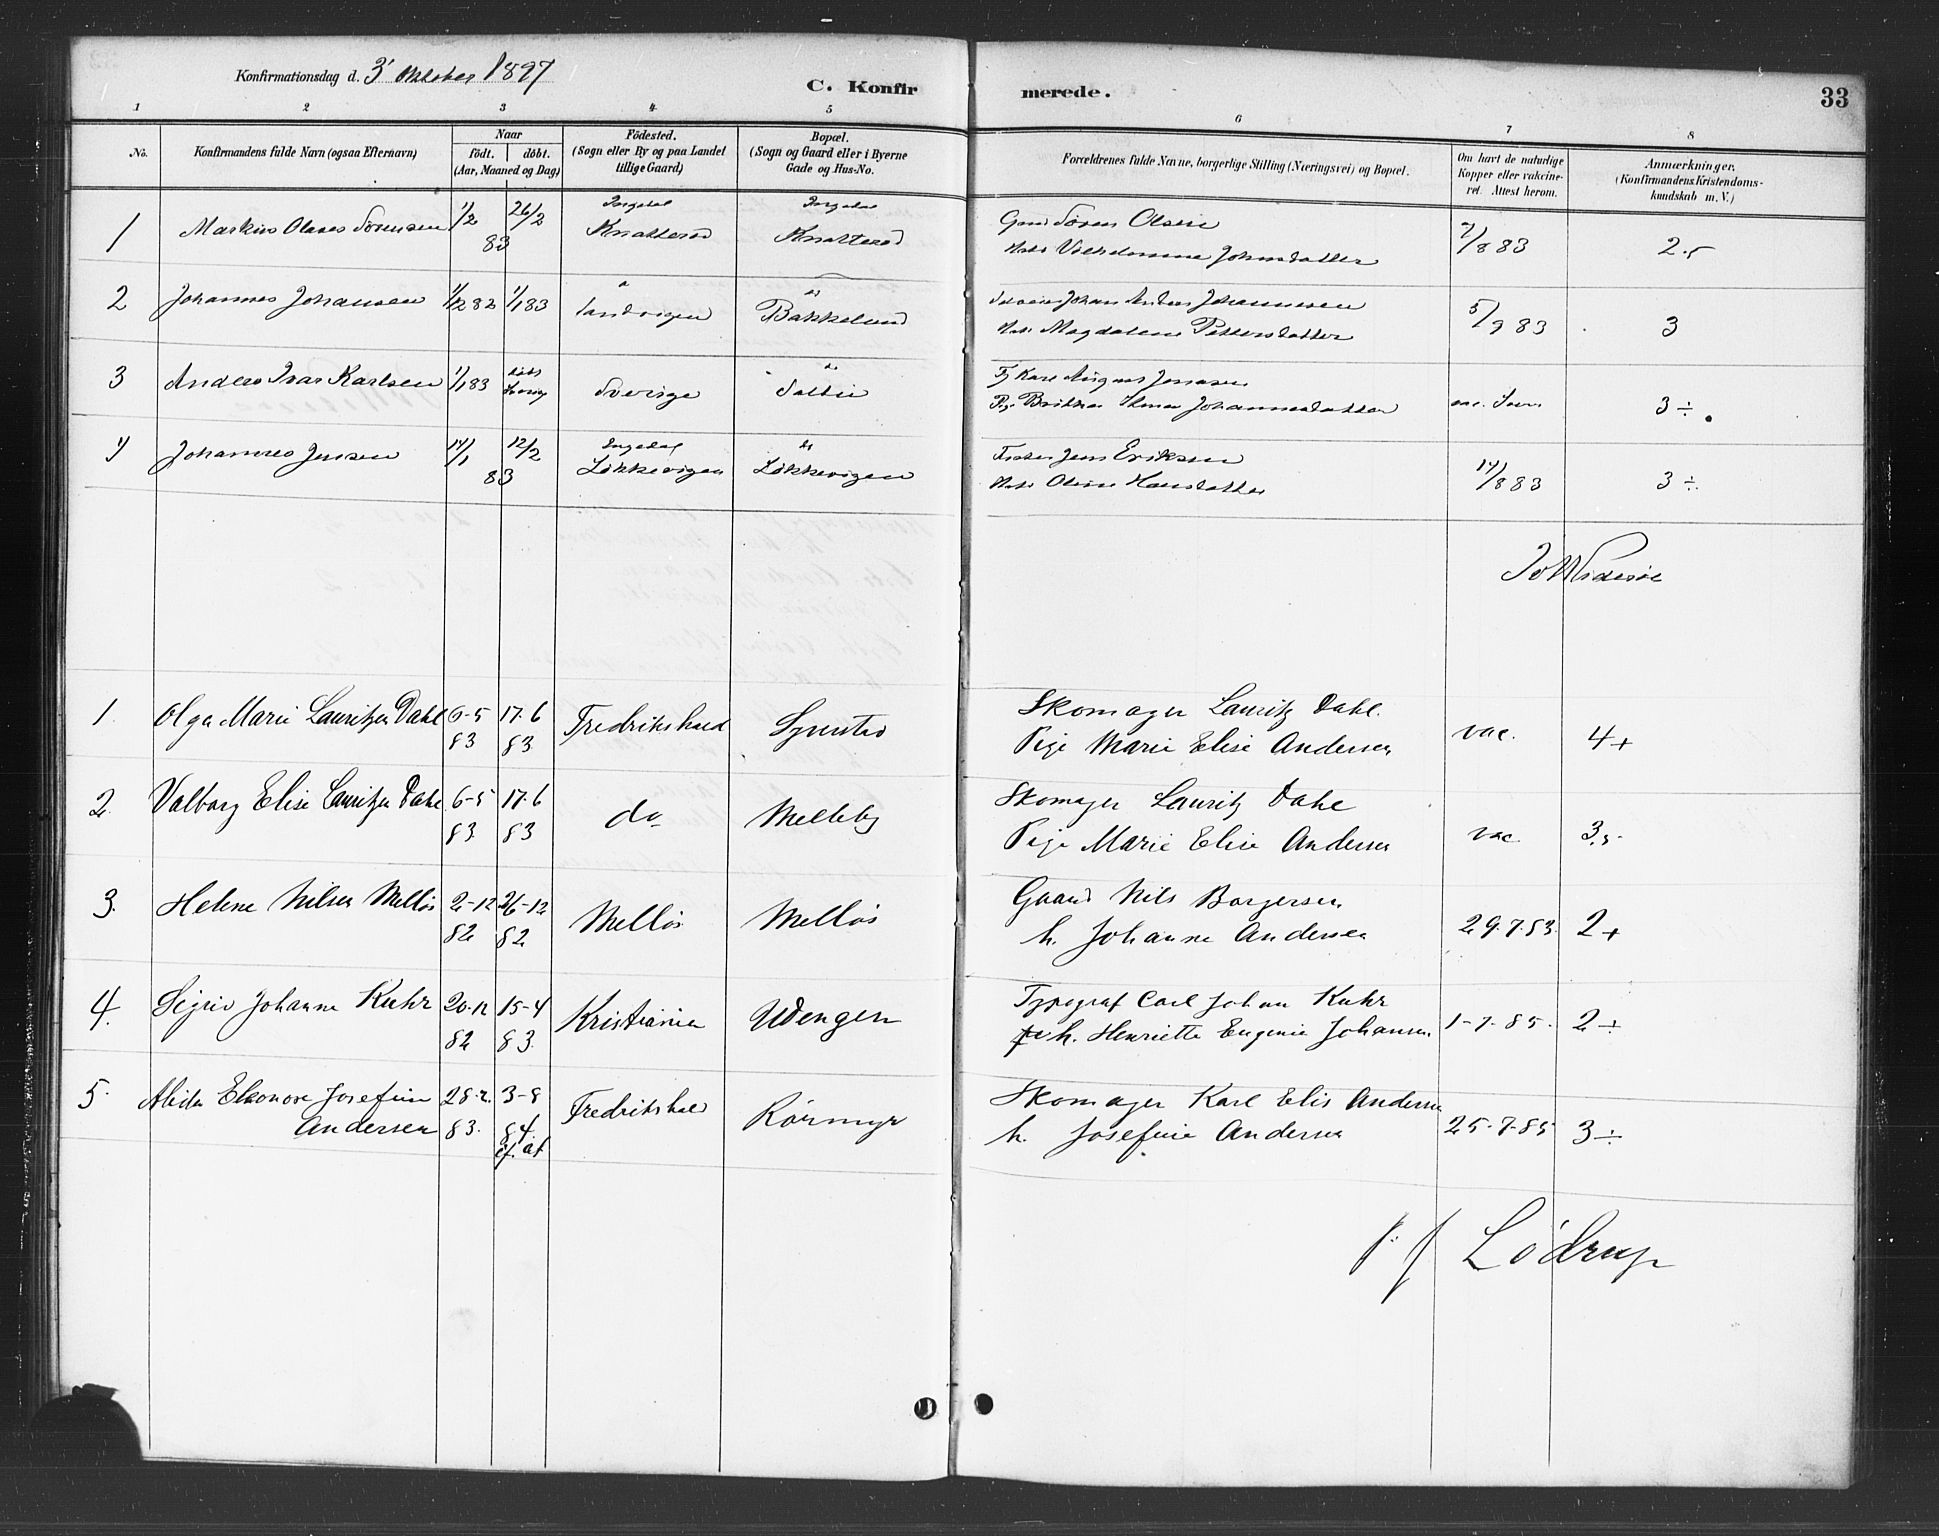 Konfirmationsdag d. 3' Oktober 1897
C. Konfirmerede.
33
1 2 3 4 5 6 7 8
No.
Konfirmandens fulde Navn (ogsaa Efternavn)
Naar
födt. döbt.
(Aar, Maaned og Dag)
Födested.
(Sogn eller By og paa Landet
tillige Gaard)
Bopæl.
(Sogn og Gaard eller i Byerne
Gade og Hus-No.
Forældrenes fulde Navne, borgerlige Stilling (Næringsvei) og Bopæl.
Om havt de naturlige
Kopper eller vakcine-
ret. Attest herom.
Anmærkninger.
(Konfirmandens Kristendoms-
kundskab m. V.)
1 Markus Olaves Sörensen 1/2 83 26/2 Knatteröd Knatteröd
Sören Olsen
Johnsdatter
7/8 83 2.5
2 Johannes Johansen 1/12 82 1/1 83 Sandvigen Bakkelund
Johan Anders Johannesen
Magdalene Pettersdatter
5/9 83 3
3 Anders Ivar Karlsen 1/1 83 Sverige
Karl August Jonasen
Johannesdatter
3 ÷
4 Johannes Jensen 14/1 83 12/2 Ingedal Lökkevigen Lökkevigen
Fisker Jens Eriksen
Oline Hansdatter
14/8 83 3 ÷
1. Olga Marie Lauritzen Dahl 6-5 83 17-6 83 Fredrikshald
Skomager Lauritz Dahl.
Pige Marie Elise Andersen
vac. 4+
2. Valborg Elise Lauritzen Dahl 6-5 83 17-6 83 do Melleby
Skomager Lauritz Dahl
Pige Marie Elise Andersen
vac. 3,5
3. Helene Nilsen Mellös 2-12 82 26-12 82 Mellös Mellös
Gaard Nils Borgersen
h. Johanne Andersen
29.7.83. 2+
4. Sigrid Johanne Kuhr 20-12 82 15-4 83 Kristiania Wengen
Typograf Carl Johan Kuhr
h. Henriette Eugenie Johansen
1-7-85. 2÷
5. Alida Eleonore Josefine
Andersen 28-2 83. 3-8 84 Fredrikshald Rörmyr
Skomager Karl Elis Andersen
h. Josefine Andersen
25-7-85 3÷
Lödrup